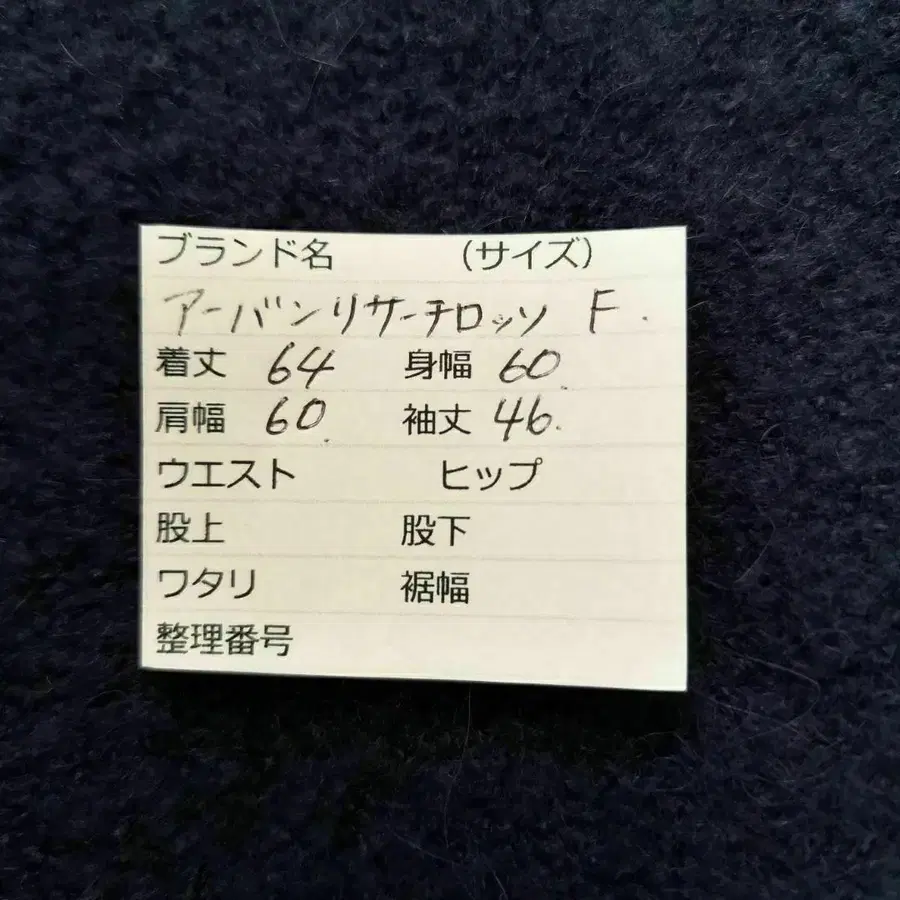 ブランド名 (サイズ)
アーバンリサーチロッソ F.
着丈 64 身幅 60.
肩幅 60. 袖丈 46.
ウエスト ヒップ
股上 股下
ワタリ 裾幅
整理番号